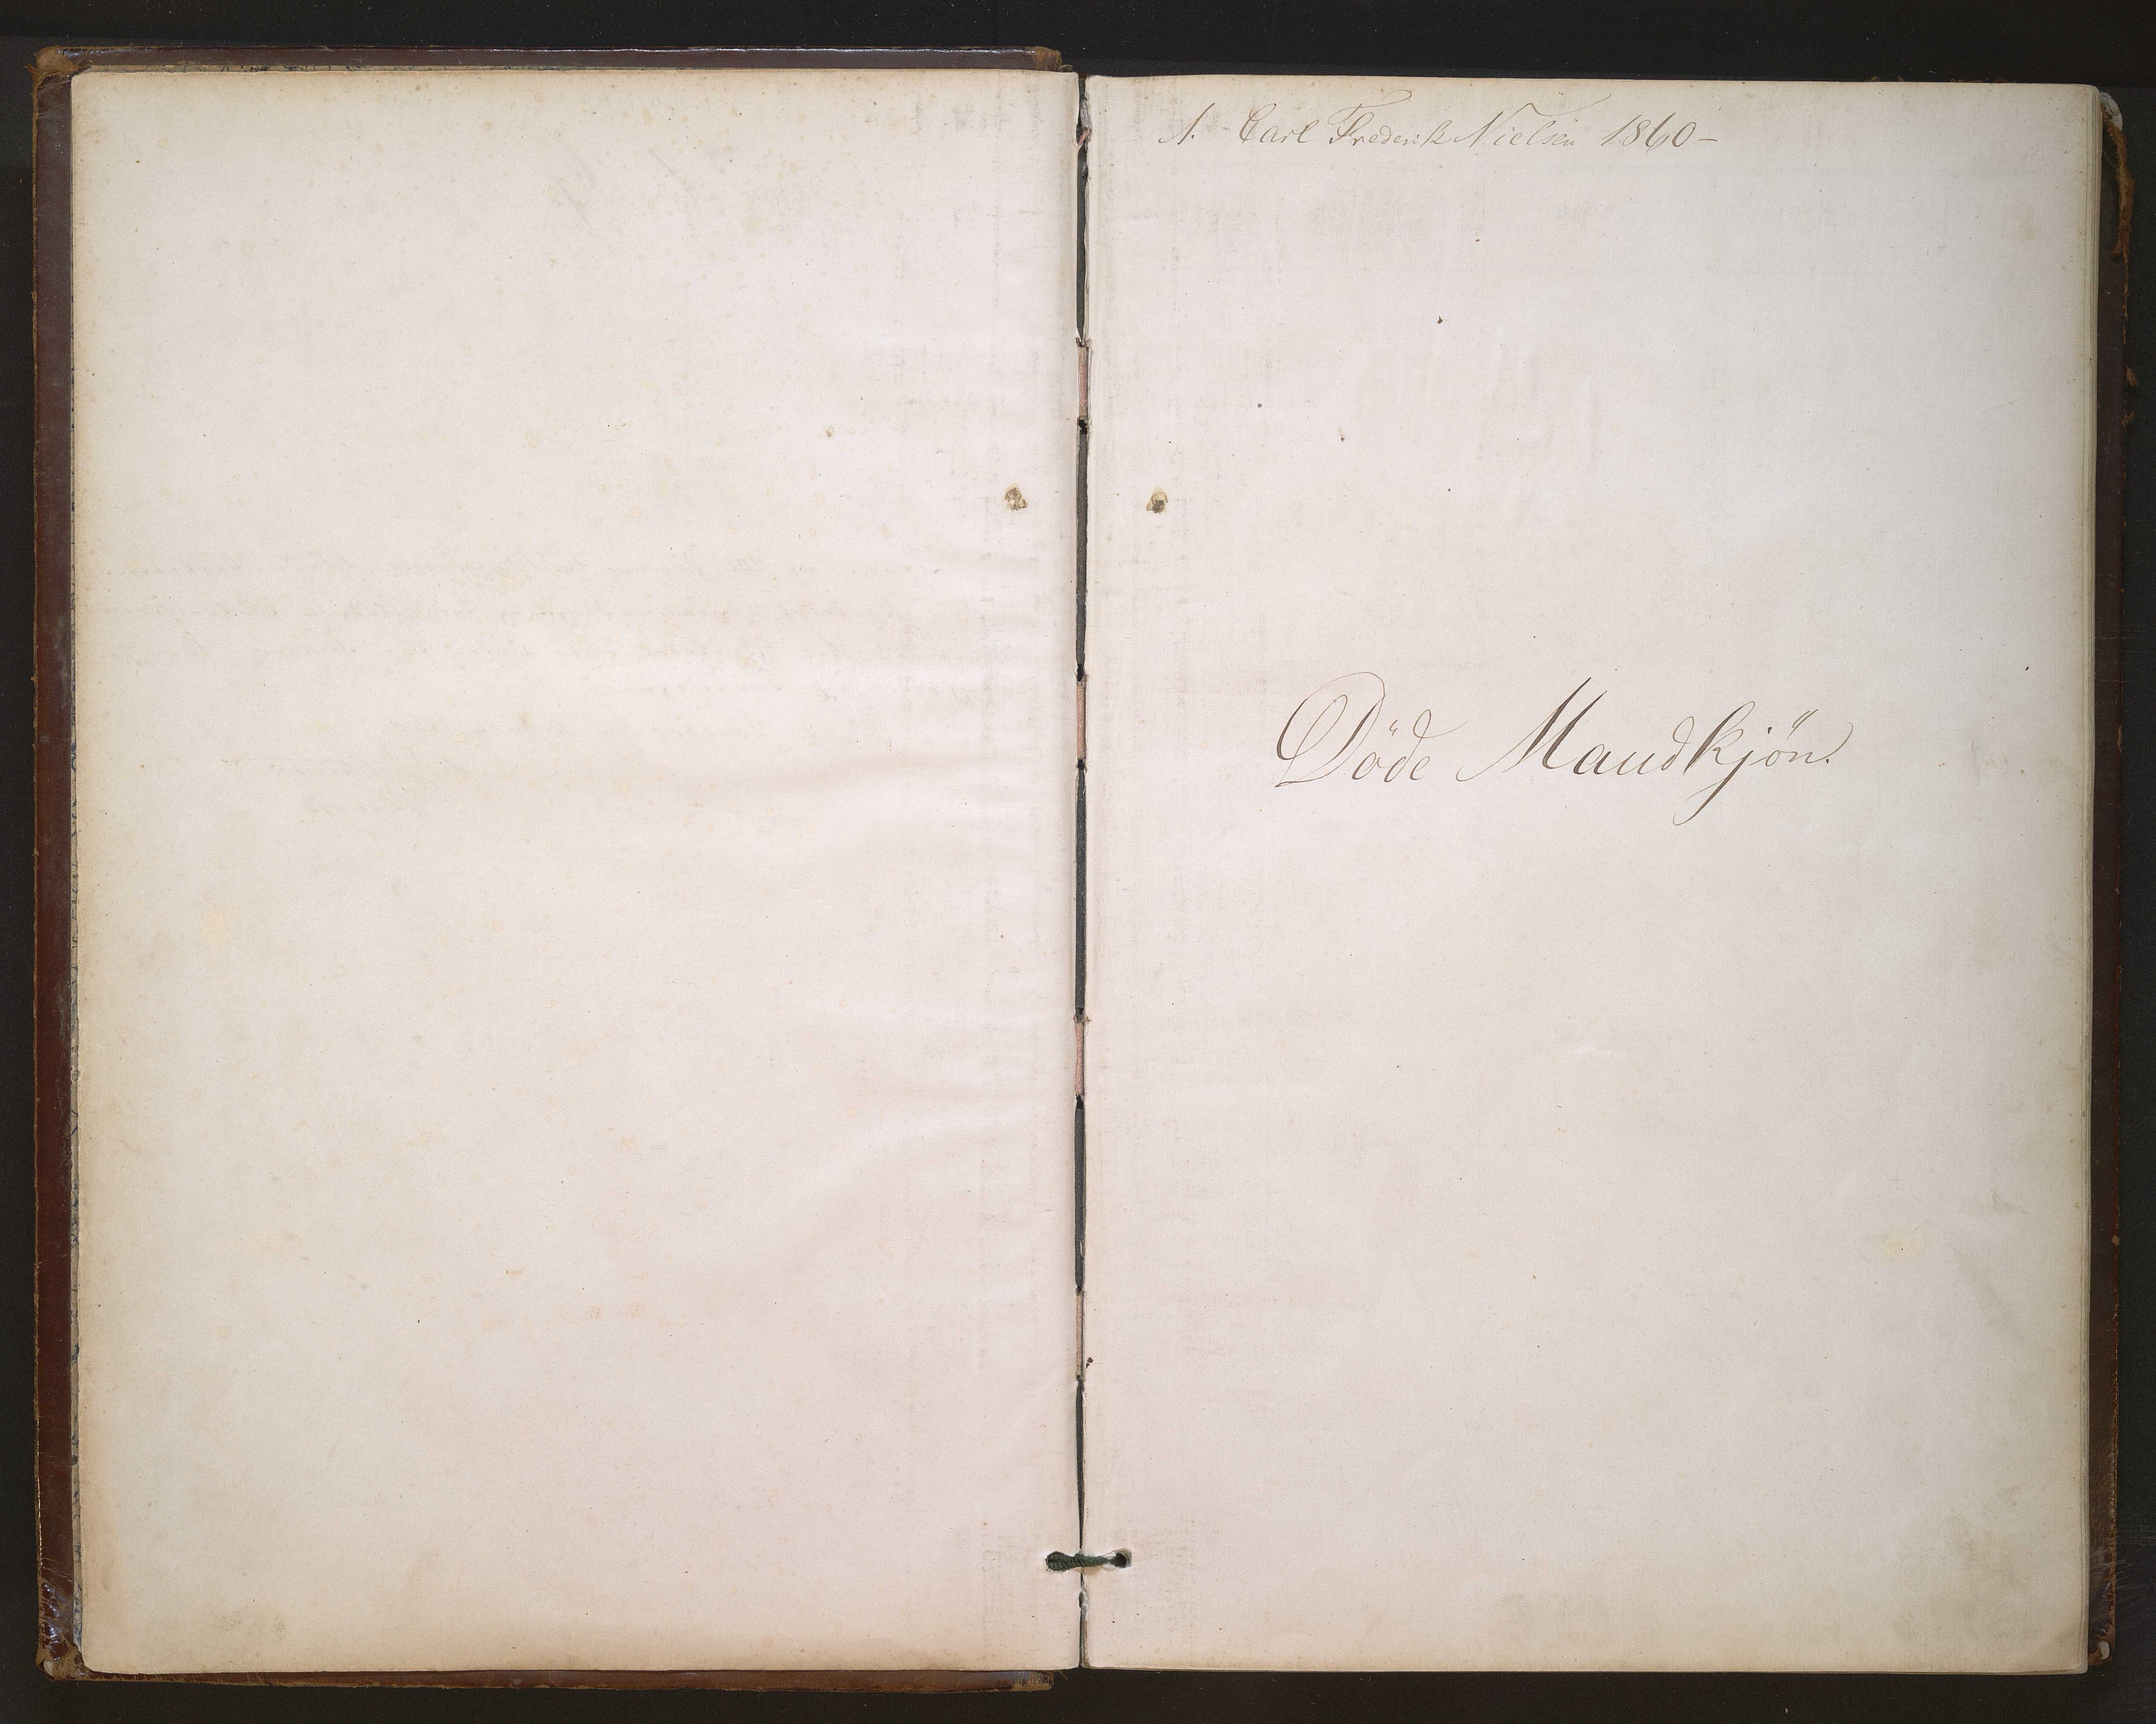 1. Carl Frederik Nielsen 1860 –
Döde Mandkjön.